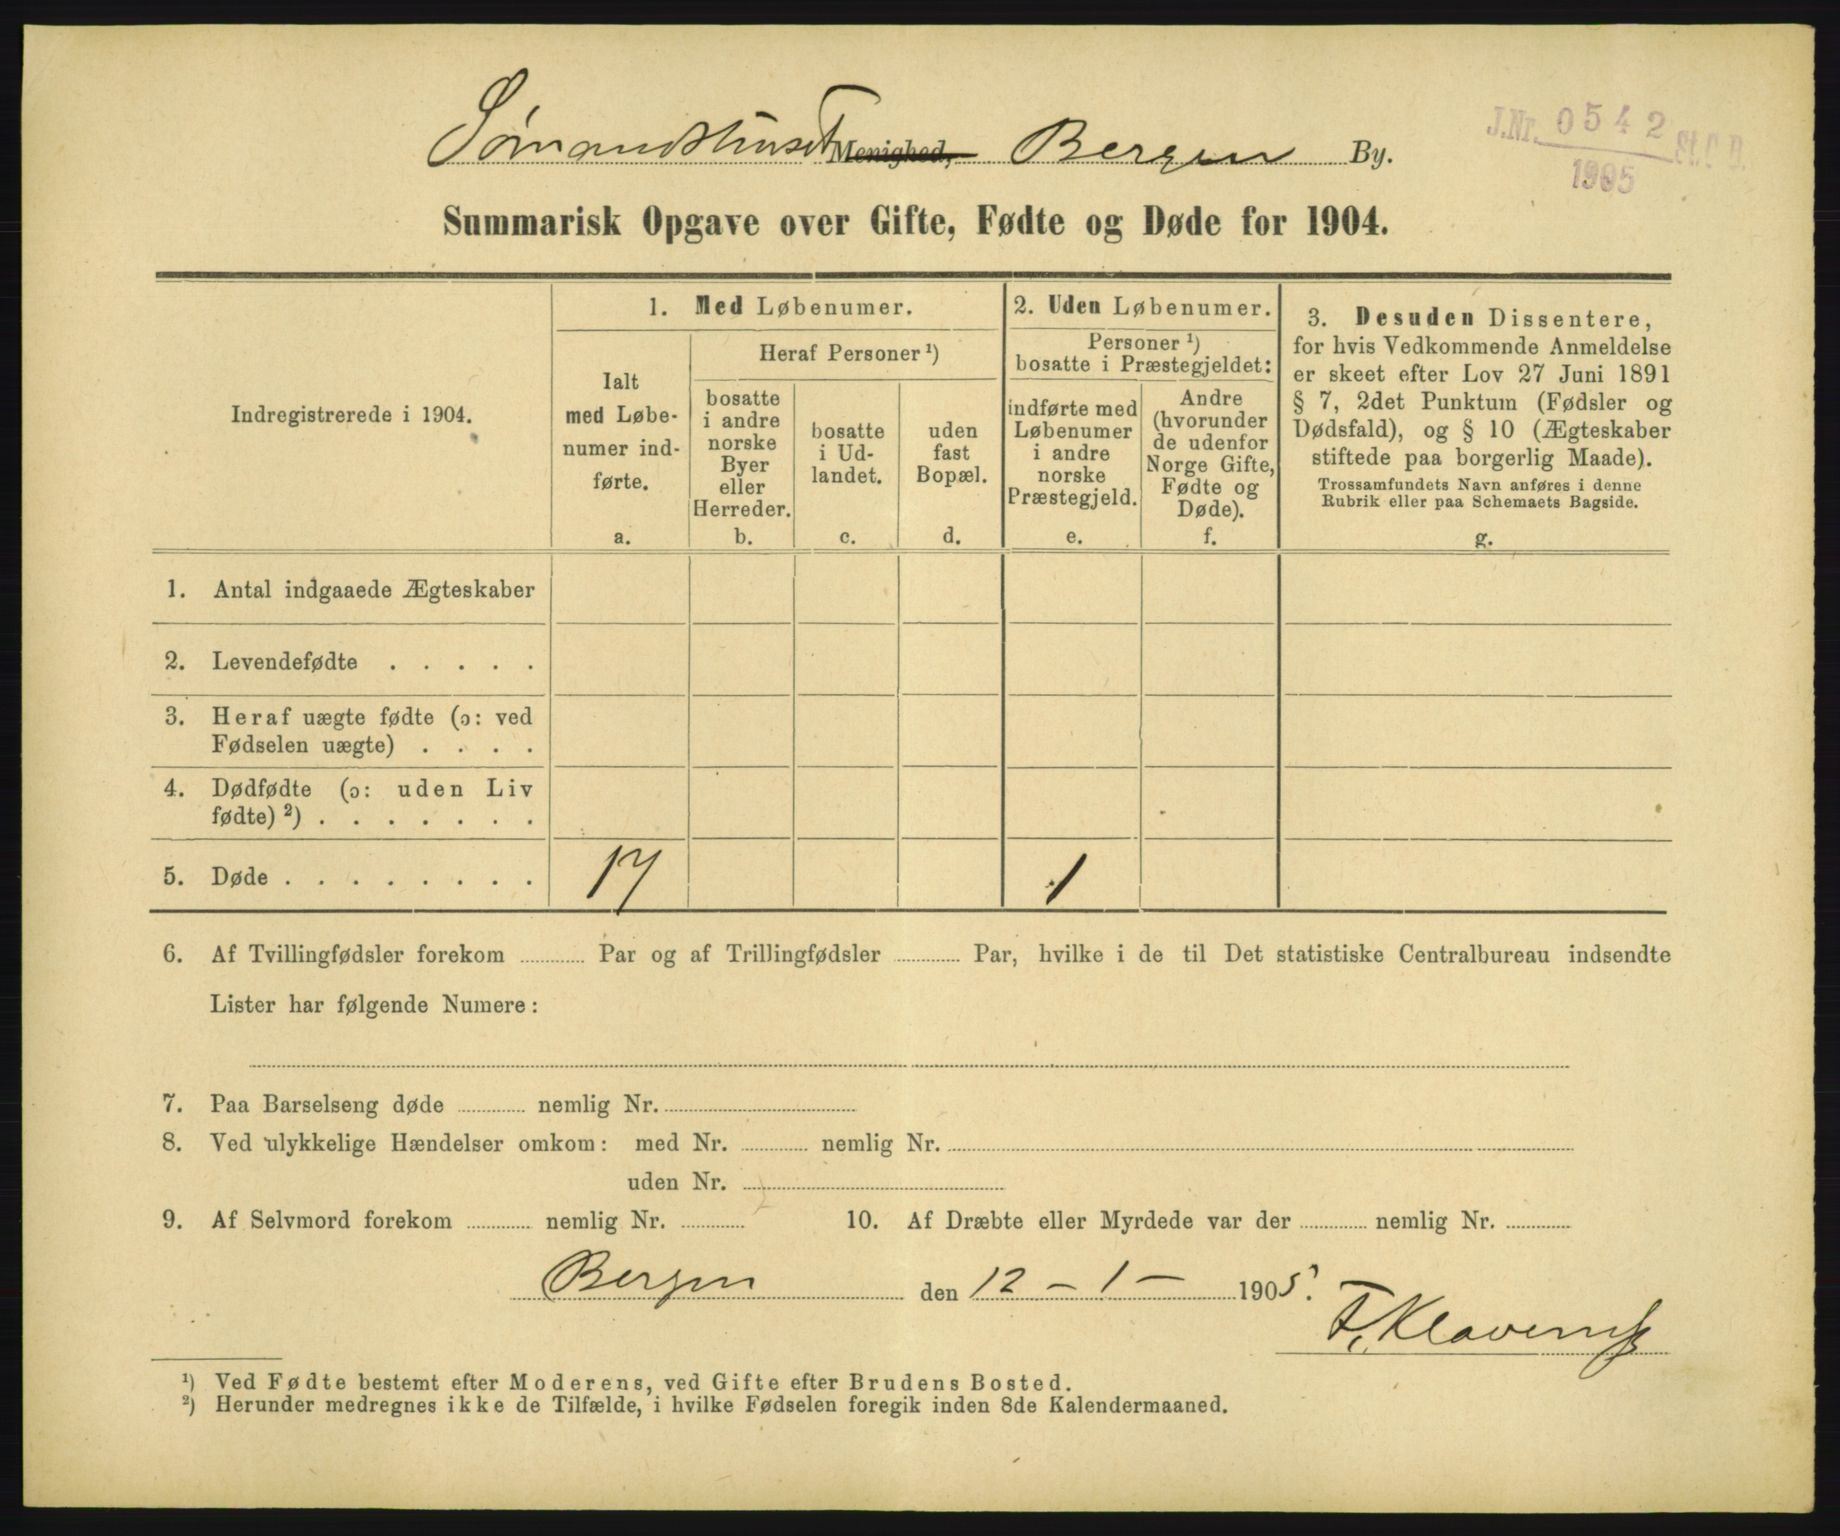 Sømandshuset Menighed, Bergen By.
J.Nr. 0542 St. C. B.
1905
Summarisk Opgave over Gifte, Fødte og Døde for 1904.
Indregistrerede i 1904.
1. Med Løbenumer.
Ialt
med Løbe-
numer ind-
førte.
a.
Heraf Personer ¹)
bosatte
i andre
norske
Byer
eller
Herreder.
b.
bosatte
i Ud-
landet.
c.
uden
fast
Bopæl.
d.
2. Uden Løbenumer.
Personer ¹)
bosatte i Præstegjeldet:
indførte med
Løbenumer
i andre
norske
Præstegjeld.
e.
Andre
(hvorunder
de udenfor
Norge Gifte,
Fødte og
Døde).
f.
3. Desuden Dissentere,
for hvis Vedkommende Anmeldelse
er skeet efter Lov 27 Juni 1891
§ 7, 2det Punktum (Fødsler og
Dødsfald), og § 10 (Ægteskaber
stiftede paa borgerlig Maade).
Trossamfundets Navn anføres i denne
Rubrik eller paa Schemaets Bagside.
g.
1. Antal indgaaede Ægteskaber
2. Levendefødte . . . . .
3. Heraf uægte fødte (ɔ: ved
Fødselen uægte) . . . .
4. Dødfødte (ɔ: uden Liv
fødte) ²) . . . . . . .
5. Døde . . . . . . . . 17 1
6. Af Tvillingfødsler forekom ............ Par og af Trillingfødsler ............ Par, hvilke i de til Det statistiske Centralbureau indsendte
Lister har følgende Numere:
7. Paa Barselseng døde ............ nemlig Nr. ............
8. Ved ulykkelige Hændelser omkom: med Nr. ............ nemlig Nr. ............
uden Nr. ............
9. Af Selvmord forekom ............ nemlig Nr. ............ 10. Af Dræbte eller Myrdede var der ............ nemlig Nr. ............
Bergen den 12 – 1 – 1905.
¹) Ved Fødte bestemt efter Moderens, ved Gifte efter Brudens Bosted.
²) Herunder medregnes ikke de Tilfælde, i hvilke Fødselen foregik inden 8de Kalendermaaned.